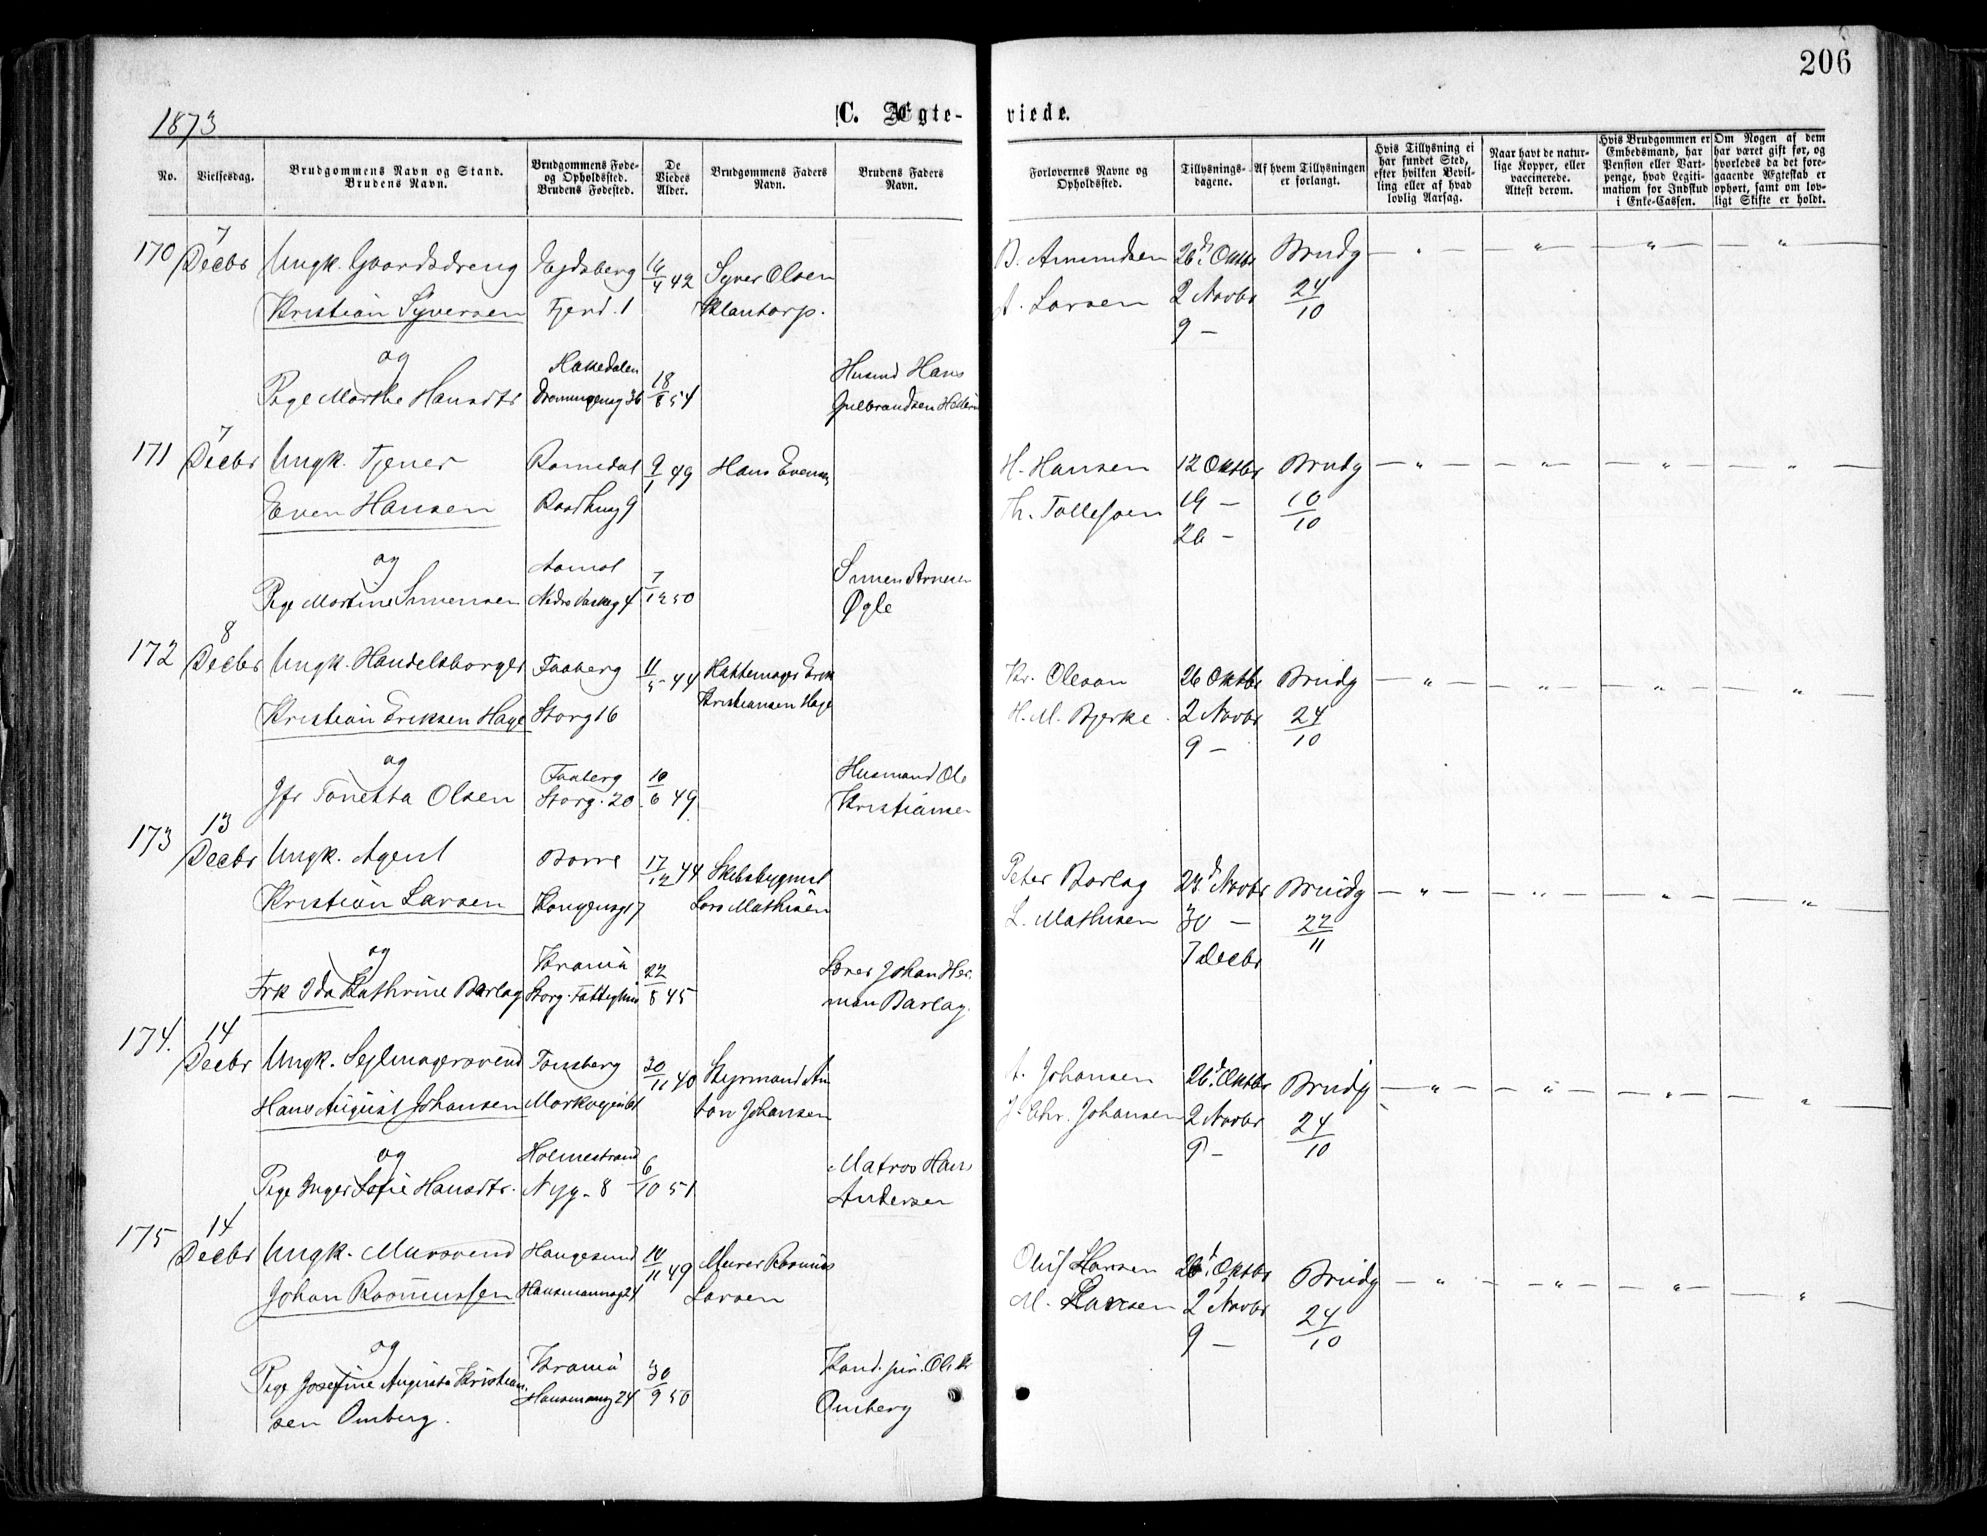 206
1873
C. Ægte-
viede.
No.
Vielsesdag.
Brudgommens Navn og Stand.
Brudens Navn.
Brudgommens Føde-
og Opholdssted.
Brudens Fødested.
De
Viedes
Alder.
Brudgommens Faders
Navn.
Brudens Faders
Navn.
Forlovernes Navne og
Opholdssted.
Tillysnings-
dagene.
Af hvem Tillysningen
er forlangt.
Hvis Tillysning ei
har fundet Sted,
efter hvilken Bevil-
ling eller af hvad
lovlig Aarsag.
Naar havt de natur-
lige Kopper, eller
vaccinerede.
Attest derom.
Hvis Brudgommen er
Embedsmand, har
Pension eller Vart-
penge, hvad Legiti-
mation for Indskud
i Enke-Cassen.
Om Nogen af dem
har været gift før, og
hvorledes da det fore-
gaaende Ægteskab er
ophørt, samt om lov-
ligt Skifte er holdt.
170
7
Decbr
Ungk. Gaardsdreng
Kristian Syversen
og
Pige Marthe Hansdtr
Fjerd. 1
42
Syver Olsen
Klantorp.
Hakedalen
18/8 54
Husmd Hans
Gulbrandsen
B. Amundsen
A. Larsen
26d. Oktbr
2 Novbr
9 –
Brudg
24/10
171
7
Decbr
Ungk. Tjener
Even Hansen
og
Pige Martine Simensen
Romedal
Raadhusg 9
9/1 49
Hans Evensen
Aamot
7/12 50
Simen Arnesen
Øgle
H. Hansen
Th. Tollefsen
12 Oktbr
19 –
26 –
Brudg
10/10
172
8
Decbr
Ungk. Handelsborger
Kristian Eriksen Hage
og
Jfr Tonetta Olsen
Faaberg
Storg 16
11/5 44
Hattemager Erik
Kristiansen Hage
Faaberg
Storg. 20
10/6 49
Husmand Ole
Kristiansen
Kr. Olesen
H. M. Bjerke
26 Oktbr
2 Novbr
9 –
Brudg
24/10
173
13
Decbr
Ungk. Agent
Kristian Larsen
og
Frk Ida Kathrine Barlag
Borre
Kongensgt 7
17/12 44
Skibsbygmst
Lars Mathisen
Krania
22/8 45
Johan Her-
man Barlag.
Peter Barlag
L. Mathisen
23d Novbr
30 –
7 Decbr
Brudg
22/11
174.
14
Decbr
Ungk. Sejlmagersvend
Hans August Johansen
og
Pige Inger Sofie Hansdtr.
Tønsberg
Markvejen 61
30/11 40
Styrmand An-
ton Johansen
Holmestrand
Nyg. 8
6/10 51
Matros Hans
Andersen
A. Johansen
J. Chr. Johansen
26d. Oktbr
2 Novbr
9 –
Brudg
24/10
175
14
Decbr
Ungk. Mursvend
Johan Rasmussen
og
Pige Josefine Augusta Kristian-
sen Omberg.
Haugesund
Hausmannsg 24
10/11 49
Murer Rasmus
Larsen
Krania
Hausmannsg 24
30/9 50
Kand. jur. Ole Kr
Omberg
Oluf Hansen
M. Larsen
26d. Oktbr
2 Novbr
9 –
Brudg
24/10